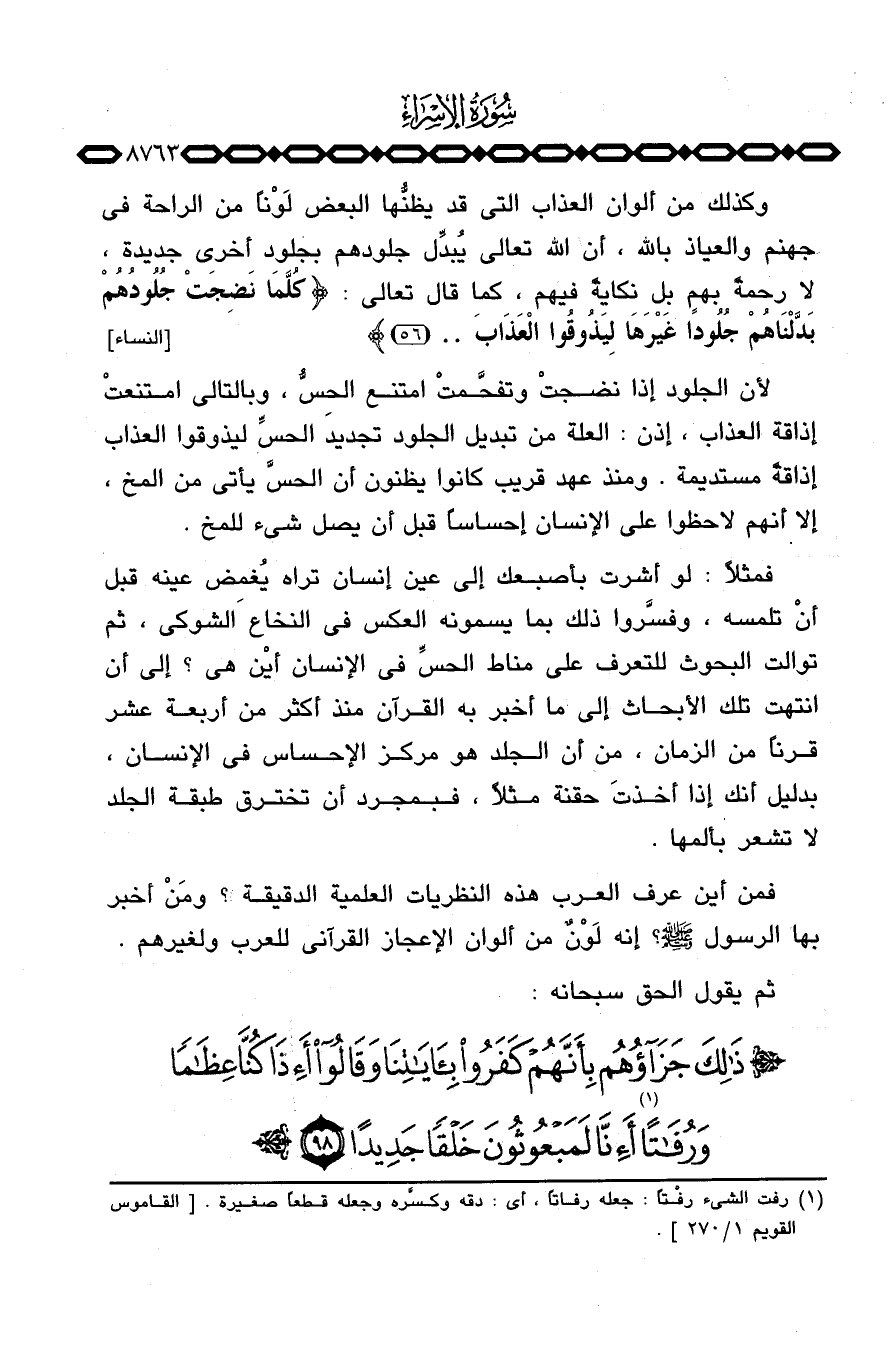 سُورَةُ الإِسْرَاءِ
٨٧٦٣
وكذلك من ألوان العذاب التى قد يظنُّها البعض لَوْناً من الراحة فى
جهنم والعياذ بالله ، أن الله تعالى يُبدِّل جلودهم بجلود أخرى جديدة ،
لا رحمةً بهم بل نكايةً فيهم ، كما قال تعالى : ﴿ كُلَّمَا نَضِجَتْ جُلُودُهُمْ
بَدَّلْنَاهُمْ جُلُودًا غَيْرَهَا لِيَذُوقُوا الْعَذَابَ .. (٥٦) ﴾ [النساء]
لأن الجلود إذا نضـجتْ وتفحَّمتْ امتنـع الحسُّ ، وبالتالى امـتنعتْ
إذاقة العذاب ، إذن : العلة من تبديل الجلود تجديد الحسِّ ليذوقوا العذاب
إذاقةً مستديمة . ومنذ عهد قريب كانوا يظنون أن الحسَّ يأتى من المخ ،
إلا أنهم لاحظوا على الإنسان إحساساً قبل أن يصل شىء للمخ .
فمثلاً : لو أشرت بأصبعك إلى عين إنسان تراه يُغمض عينه قبل
أنْ تلمسه ، وفسَّروا ذلك بما يسمونه العكس فى النخاع الشوكى ، ثم
توالت البحوث للتعرف على مناط الحسِّ فى الإنسان أيْن هى ؟ إلى أن
انتهت تلك الأبحـاث إلى ما أخبر به القـرآن منذ أكثر من أربعـة عشر
قـرناً من الزمان ، من أن الـجلد هو مركـز الإحـساس فى الإنسـان ،
بدليل أنك إذا أخـذتَ حقنة مـثلاً ، فـبـمجرد أن تخترق طبقة الجلد
لا تشعر بألمها .
فمن أين عرف العـرب هذه النظريات العلمية الدقيقـة ؟ ومَنْ أخبر
بها الرسول ﷺ؟ إنه لَوْنٌ من ألوان الإعجاز القرآنى للعرب ولغيرهم .
ثم يقول الحق سبحانه :
﴿ ذَٰلِكَ جَزَآؤُهُم بِأَنَّهُمْ كَفَرُوا۟ بِـَٔايَـٰتِنَا وَقَالُوٓا۟ أَءِذَا كُنَّا عِظَـٰمًا
وَرُفَـٰتًا (١) أَءِنَّا لَمَبْعُوثُونَ خَلْقًا جَدِيدًا ٩٨ ﴾
(١) رفت الشىء رفْـتاً : جعله رفـاتاً ، أى : دقه وكسَّره وجعله قـطعاً صغيرة . [ القـاموس
القويم ٢٧٠/١ ] .